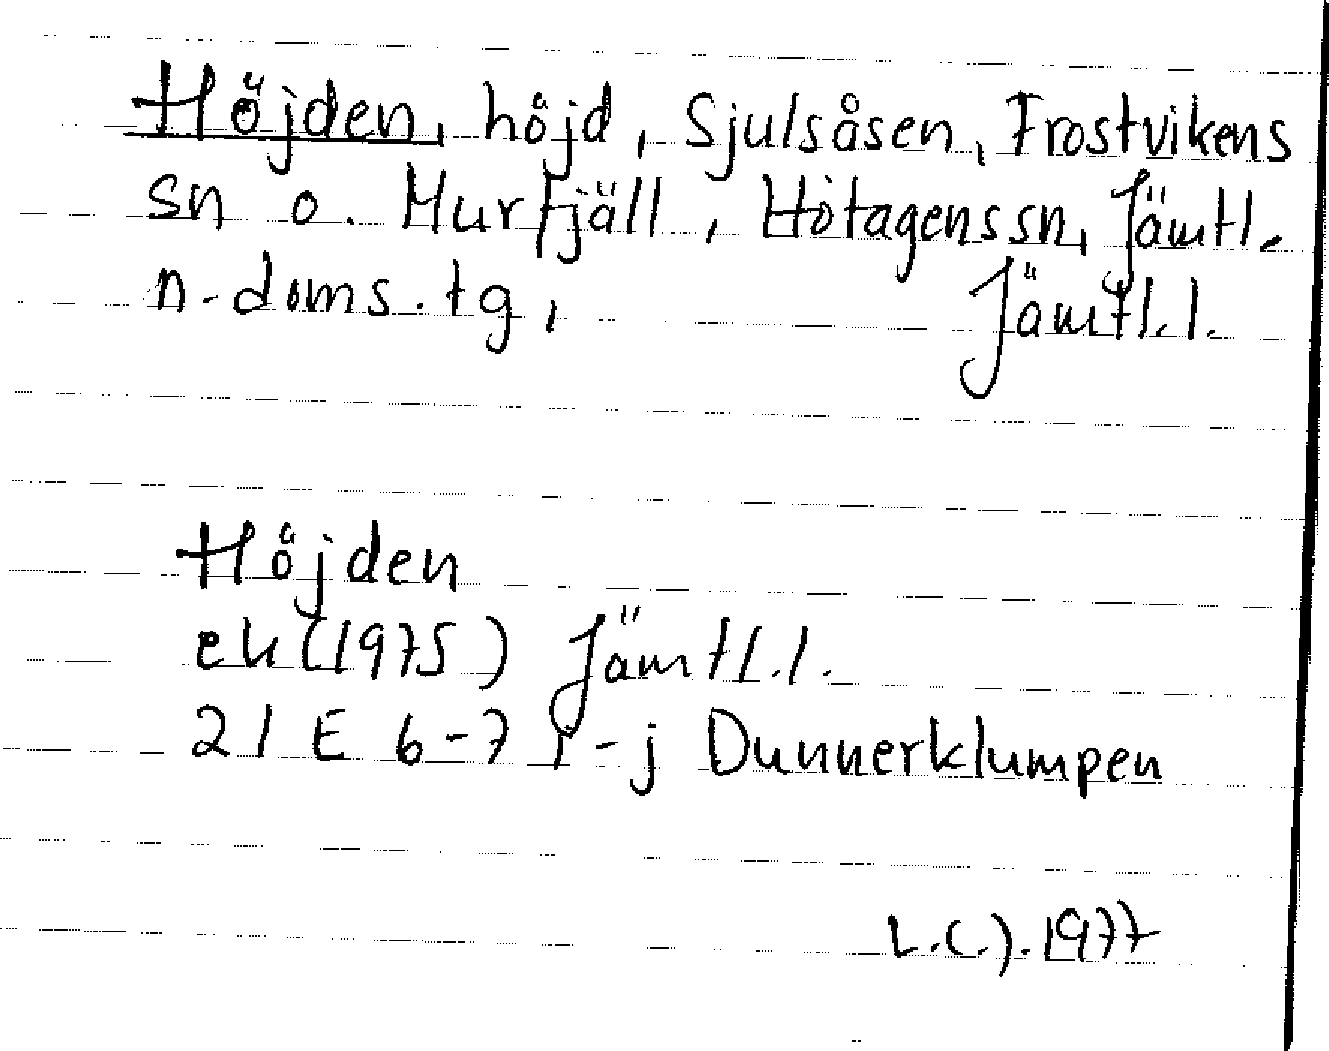 Höjden, höjd, Sjulsåsen, Frostvikens
sn o. Murfjäll, Hotagens sn, Jämtl.
n. doms. tg, Jämtl. l.
Höjden
ek (1975) Jämtl. l.
21 E 6-7 i-j Dunnerklumpen
L.C.J. 1977